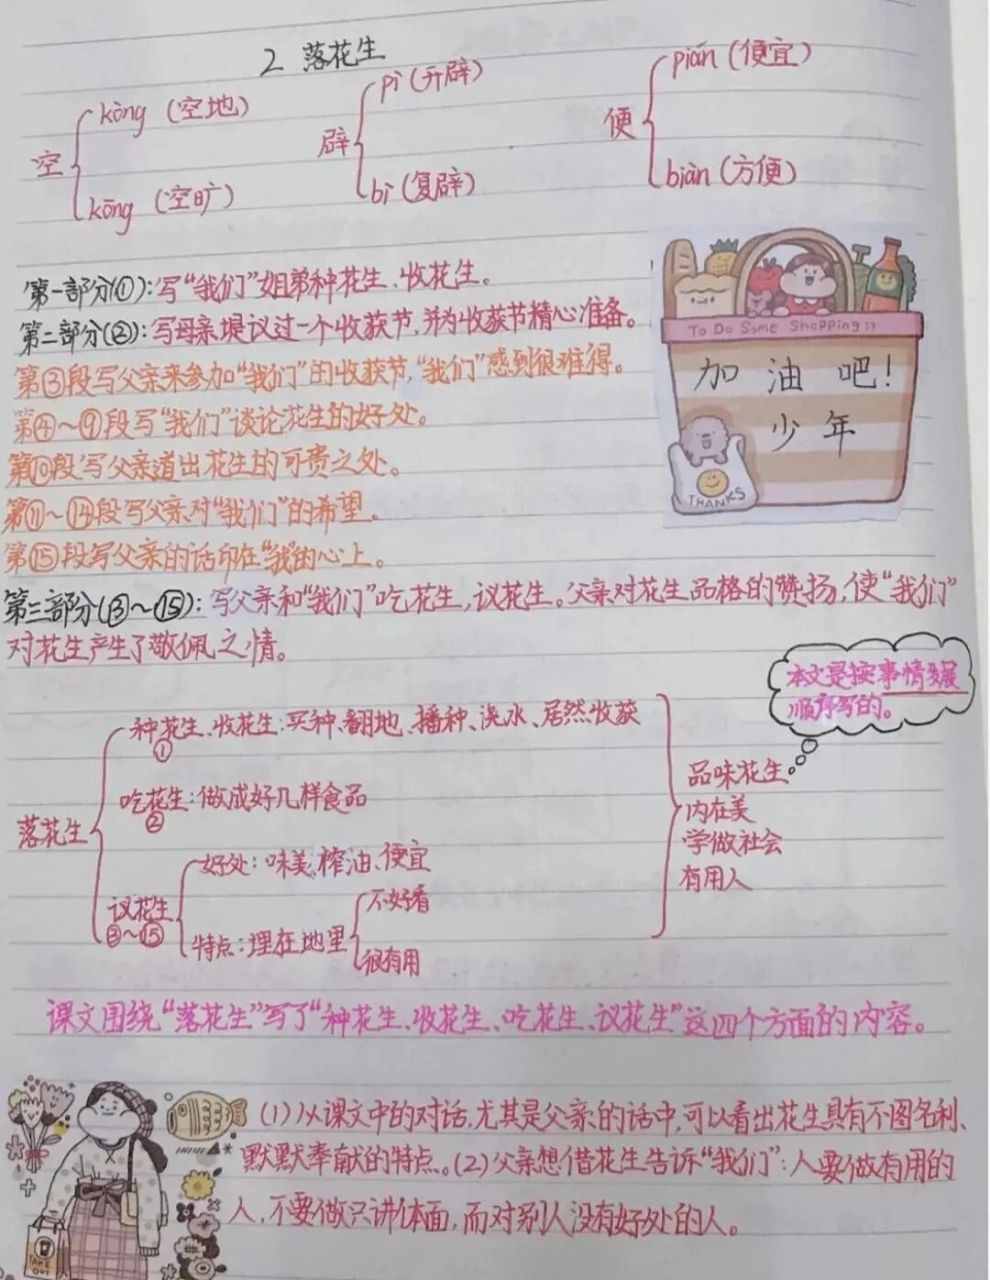 2 落花生
空 kòng (空地) kōng (空旷)
辟 pì (开辟) bì (复辟)
便 pián (便宜) biàn (方便)
第一部分(①):写“我们”姐弟种花生、收花生。
第二部分(②):写母亲提议过一个收获节,并为收获节精心准备。
第③段写父亲来参加“我们”的收获节,“我们”感到很难得。
第④~⑨段写“我们”谈论花生的好处。
第⑩段写父亲道出花生的可贵之处。
第⑪~⑭段写父亲对“我们”的希望。
第⑮段写父亲的话印在“我”的心上。
To Do Some Shopping :)
加油吧!
少年
THANKS
第三部分(③~⑮):写父亲和“我们”吃花生,议花生。父亲对花生品格的赞扬,使“我们”
对花生产生了敬佩之情。
本文是按事情发展
顺序写的。
落花生
种花生、收花生:买种、翻地、播种、浇水、居然收获
①
吃花生:做成好几样食品
②
议花生
③~⑮
好处:味美、榨油、便宜
特点:埋在地里
不好看
很有用
品味花生
内在美
学做社会
有用人
课文围绕“落花生”写了“种花生、收花生、吃花生、议花生”这四个方面的内容。
(1)从课文中的对话,尤其是父亲的话中,可以看出花生具有不图名利、
默默奉献的特点。(2)父亲想借花生告诉“我们”:人要做有用的
人,不要做只讲体面,而对别人没有好处的人。
TAKE
OUT